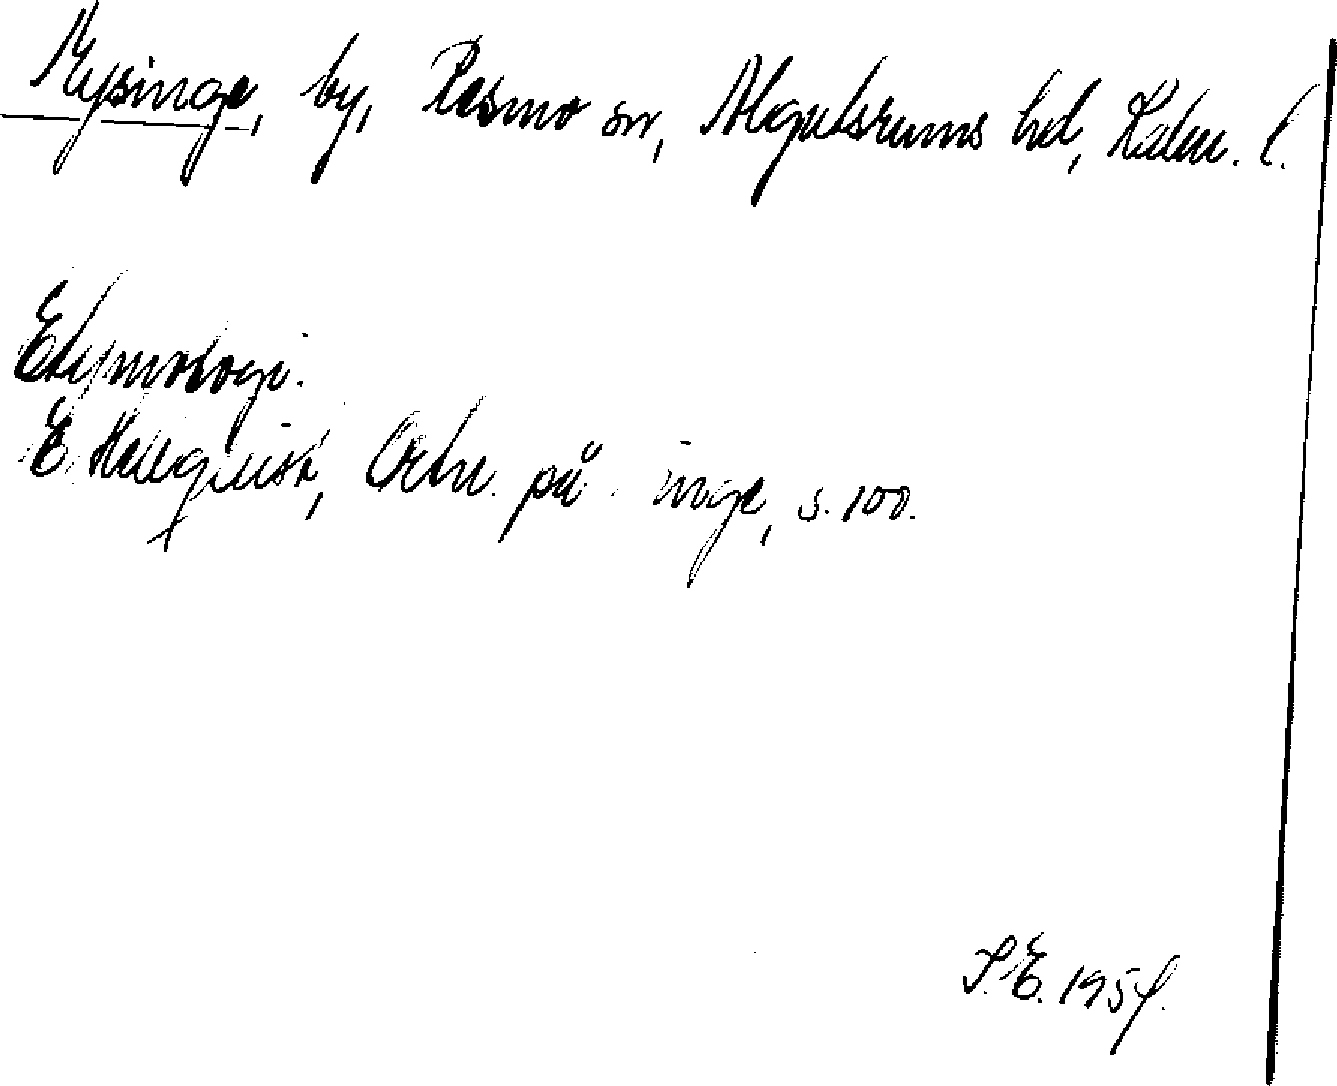 Mysinge, by, Resmo sn, Algutsrums hd, Kalm. l.
Etymologi.
E. Hellquist, Ortn. på -inge, s. 100.
S. E. 195